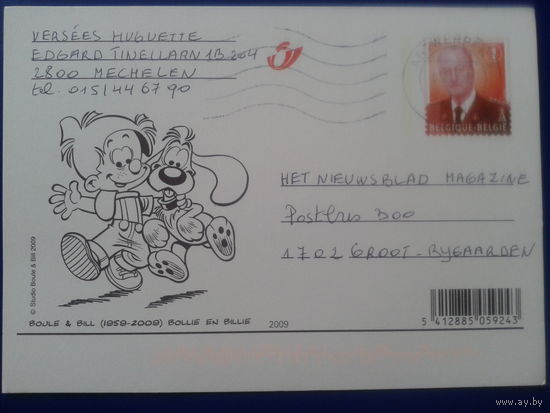 VERSÉES HUGUETTE
EDGARD TINELLAAN 1B.204
2800 MECHELEN
tel. 015/44 67 90
A
BELGIQUE-BELGIË
HET NIEUWSBLAD MAGAZINE
Postbus 300
1702 GROOT-BYGAARDEN
© Studio Boule & Bill 2009
BOULE & BILL (1959-2009) BOLLIE EN BILLIE
2009
5 412885 059243
www.ay.by